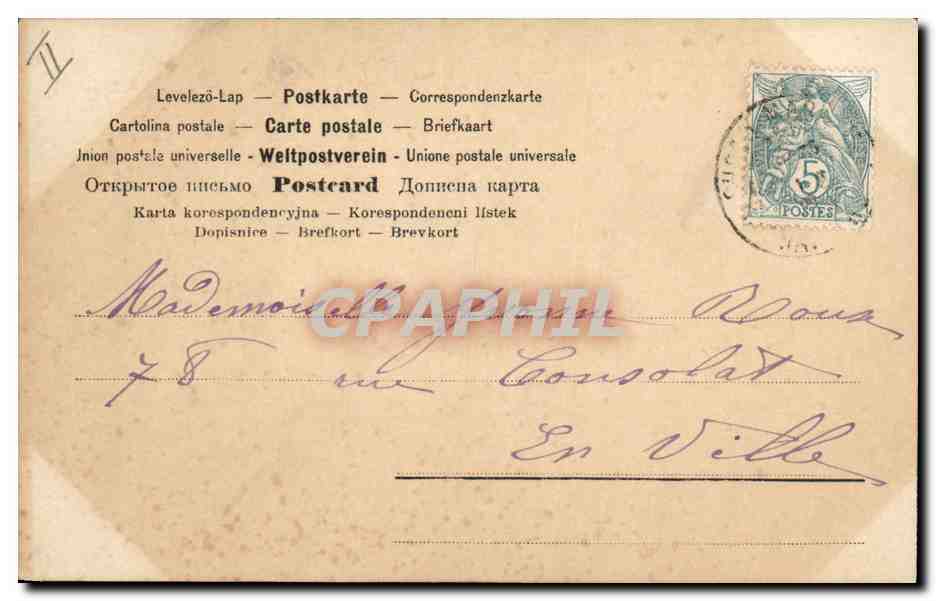 II
Levelező-Lap — Postkarte — Correspondenzkarte
Cartolina postale — Carte postale — Briefkaart
Union postale universelle - Weltpostverein - Unione postale universale
Открытое письмо Postcard Дописна карта
Karta korespondencyjna — Korespondencni lístek
Dopisnice — Brefkort — Brevkort
5
POSTES
Mademoiselle Roux
CPAPHIL
78 rue Consolat
En Ville